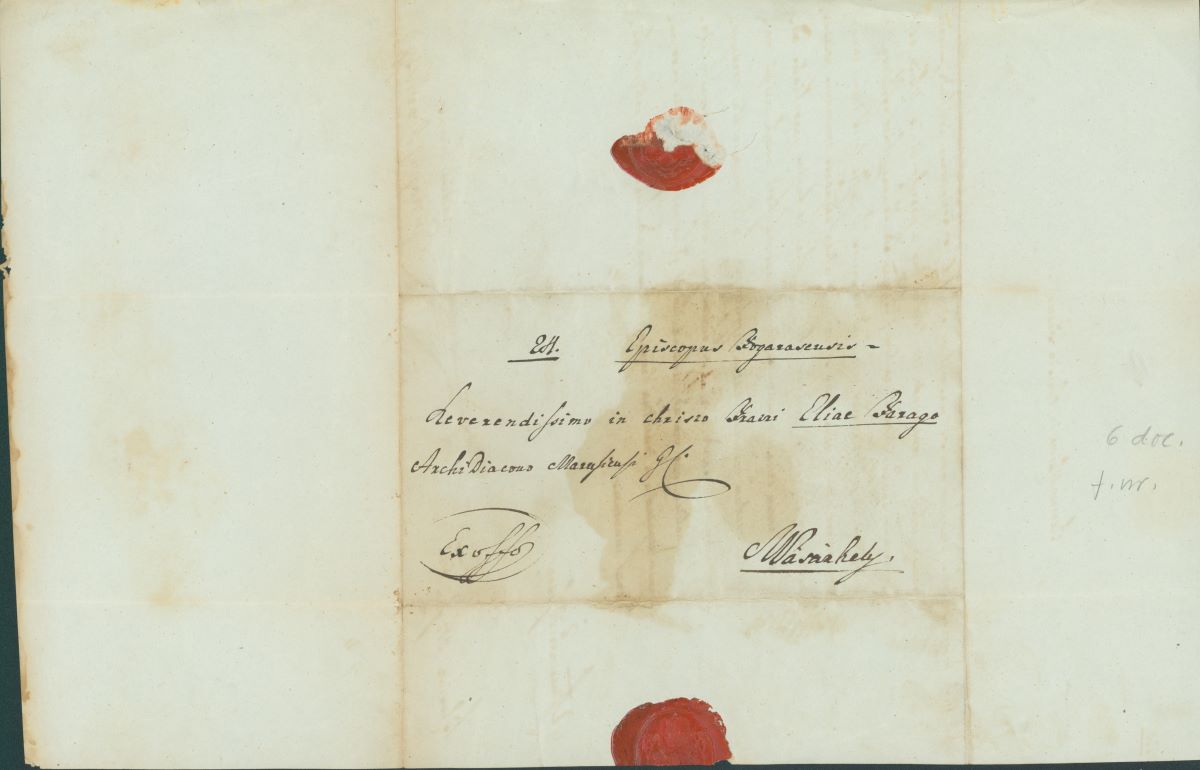 24. Episcopus Fogarasensis -
Reverendissimo in Christo Fratri Eliae Farago
ArchiDiacono Marusiensi G.C.
Ex offo
MVásárhely.
6 doc.
f. nr.